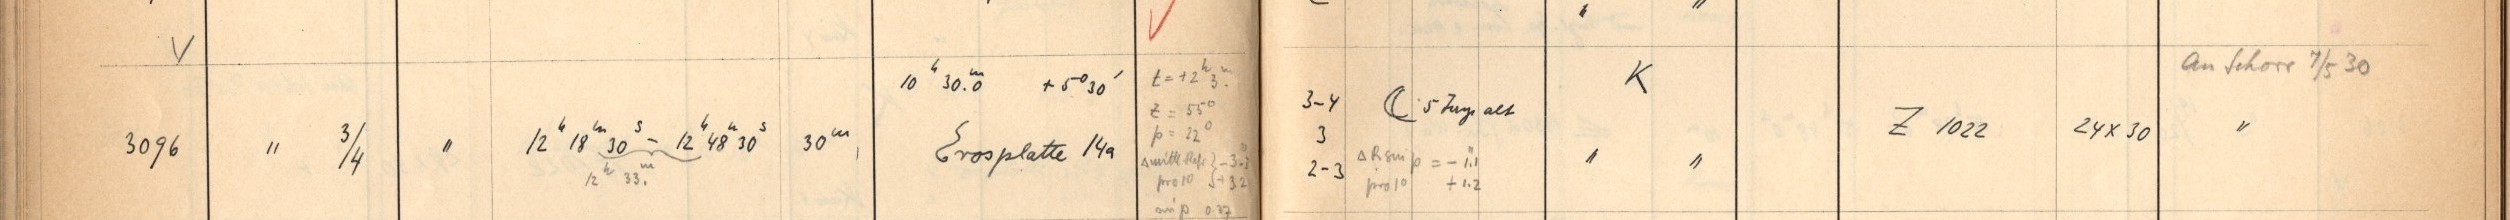 V
3096 " 3/4 " 12ʰ 18ᵐ 30ˢ – 12ʰ 48ᵐ 30ˢ 30ᵐ
12ʰ 33.ᵐ
10ʰ 30.ᵐ0 + 5° 30′
Erosplatte 14a
t = +2ʰ 3.ᵐ
z = 55°
p = 22°
Δ mittl Refr } – 3.″2
pro 10 } + 3.2
sin p 0.37
3–4
3
2–3
☾ 5 Tage alt
Δ R sin p = – 1.″1
pro 10 + 1.2
" "
K
" "
Z 1022
24 x 30
An Schorr 7/5 30
"